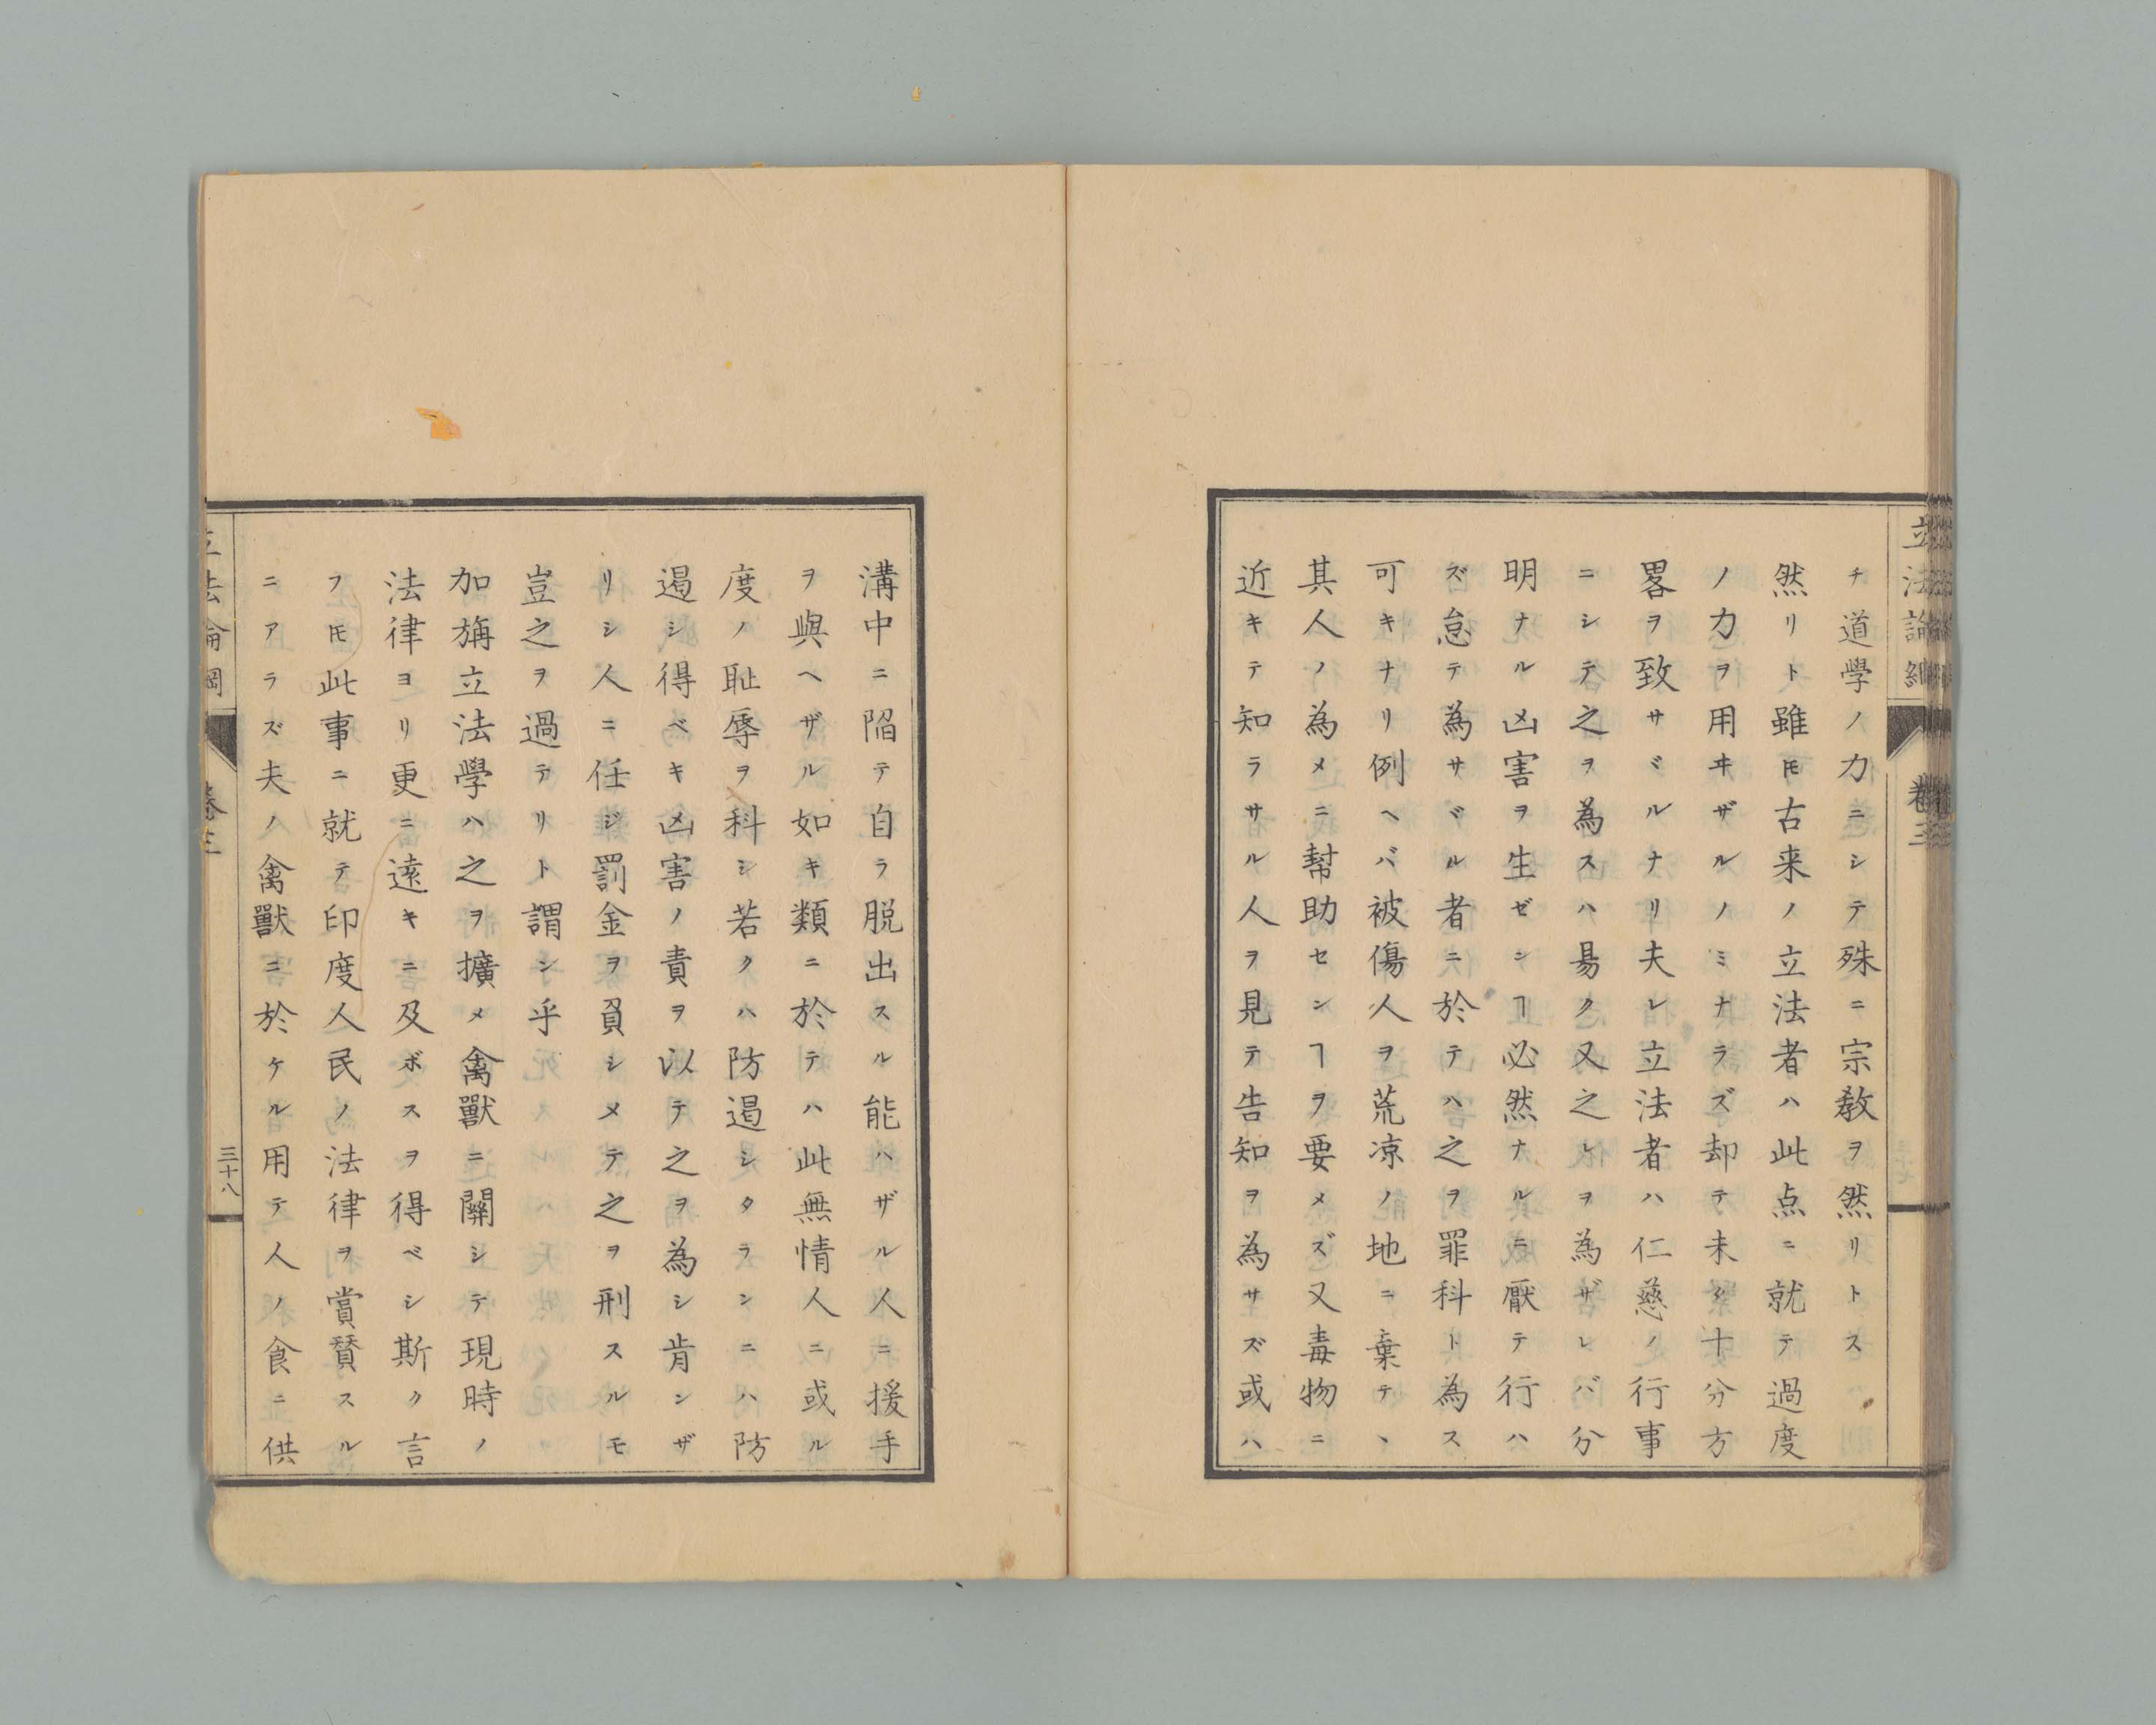 立法論綱
卷三
チ道學ノ力ニシテ殊ニ宗教ヲ然リトス
然リト雖𪜈古来ノ立法者ハ此点ニ就テ過度
ノ力ヲ用ヰザルノミナラズ却テ未タ十分方
畧ヲ致サヾルナリ夫レ立法者ハ仁慈ノ行事
ニシテ之ヲ為スハ昜ク又之レヲ為ザレバ分
明ナル凶害ヲ生ゼンヿ必然ナルニ厭テ行ハ
ズ怠テ為サヾル者ニ於テハ之ヲ罪科ト為ス
可キナリ例ヘバ被傷人ヲ荒凉ノ地ニ棄テヽ
其人ノ為メニ幇助センヿヲ要メズ又毒物ニ
近キテ知ラサル人ヲ見テ告知ヲ為サズ或ハ
溝中ニ陷テ自ラ脱出スル能ハザル人ニ援手
ヲ與ヘザル如キ類ニ於テハ此無情人ニ或ル
度ノ耻辱ヲ科シ若クハ防遏シタランニハ防
遏シ得ベキ凶害ノ責ヲ以テ之ヲ為シ肯ンザ
リシ人ニ任ジ罰金ヲ負シメテ之ヲ刑スルモ
豈之ヲ過テリト謂ン乎
加旃立法學ハ之ヲ擴メ禽獸ニ關シテ現時ノ
法律ヨリ更ニ遠キニ及ボスヲ得ベシ斯ク言
フ𪜈此事ニ就テ印度人民ノ法律ヲ賞賛スル
ニアラズ夫ノ禽獸ニ於ケル用テ人ノ食ニ供
立法論綱
卷三
三十八